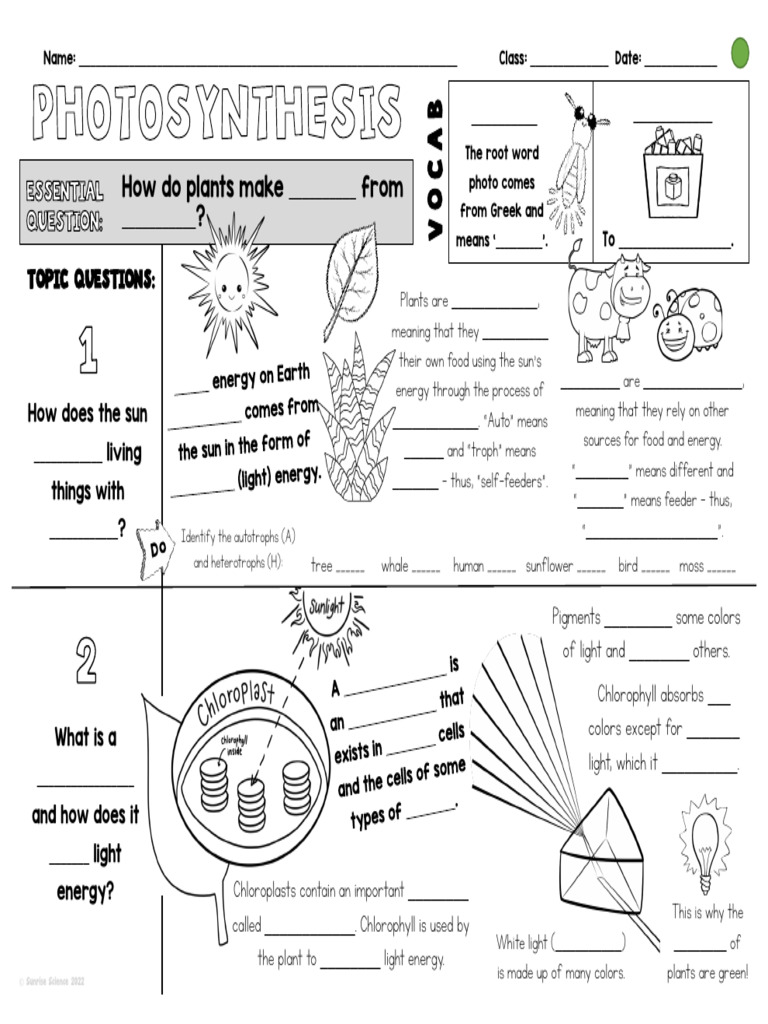 Name: ______________________ Class: ____________ Date: ________
PHOTOSYNTHESIS
ESSENTIAL
QUESTION:
How do plants make ______ from
_______?
VOCAB
________
The root word
photo comes
from Greek and
means '______'.
________
To ______________.
TOPIC QUESTIONS:
1
How does the sun
________ living
things with
________?
____ energy on Earth
________ comes from
the sun in the form of
_______ (light) energy.
Plants are ____________,
meaning that they _________
their own food using the sun's
energy through the process of
____________. "Auto" means
_____ and "troph" means
______ - thus, "self-feeders".
________ are ______________,
meaning that they rely on other
sources for food and energy.
"_______" means different and
"______" means feeder - thus,
"__________________".
DO
Identify the autotrophs (A)
and heterotrophs (H):
tree _____ whale _____ human _____ sunflower _____ bird _____ moss _____
2
What is a
___________
and how does it
_____ light
energy?
Sunlight
Chloroplast
Chlorophyll
inside
A ___________ is
an __________ that
exists in ______ cells
and the cells of some
types of ______.
Chloroplasts contain an important ________
called ____________. Chlorophyll is used by
the plant to ________ light energy.
Pigments _________ some colors
of light and ________ others.
Chlorophyll absorbs ___
colors except for _______
light, which it __________.
White light (_________)
is made up of many colors.
This is why the
_______ of
plants are green!
© Sunrise Science 2022